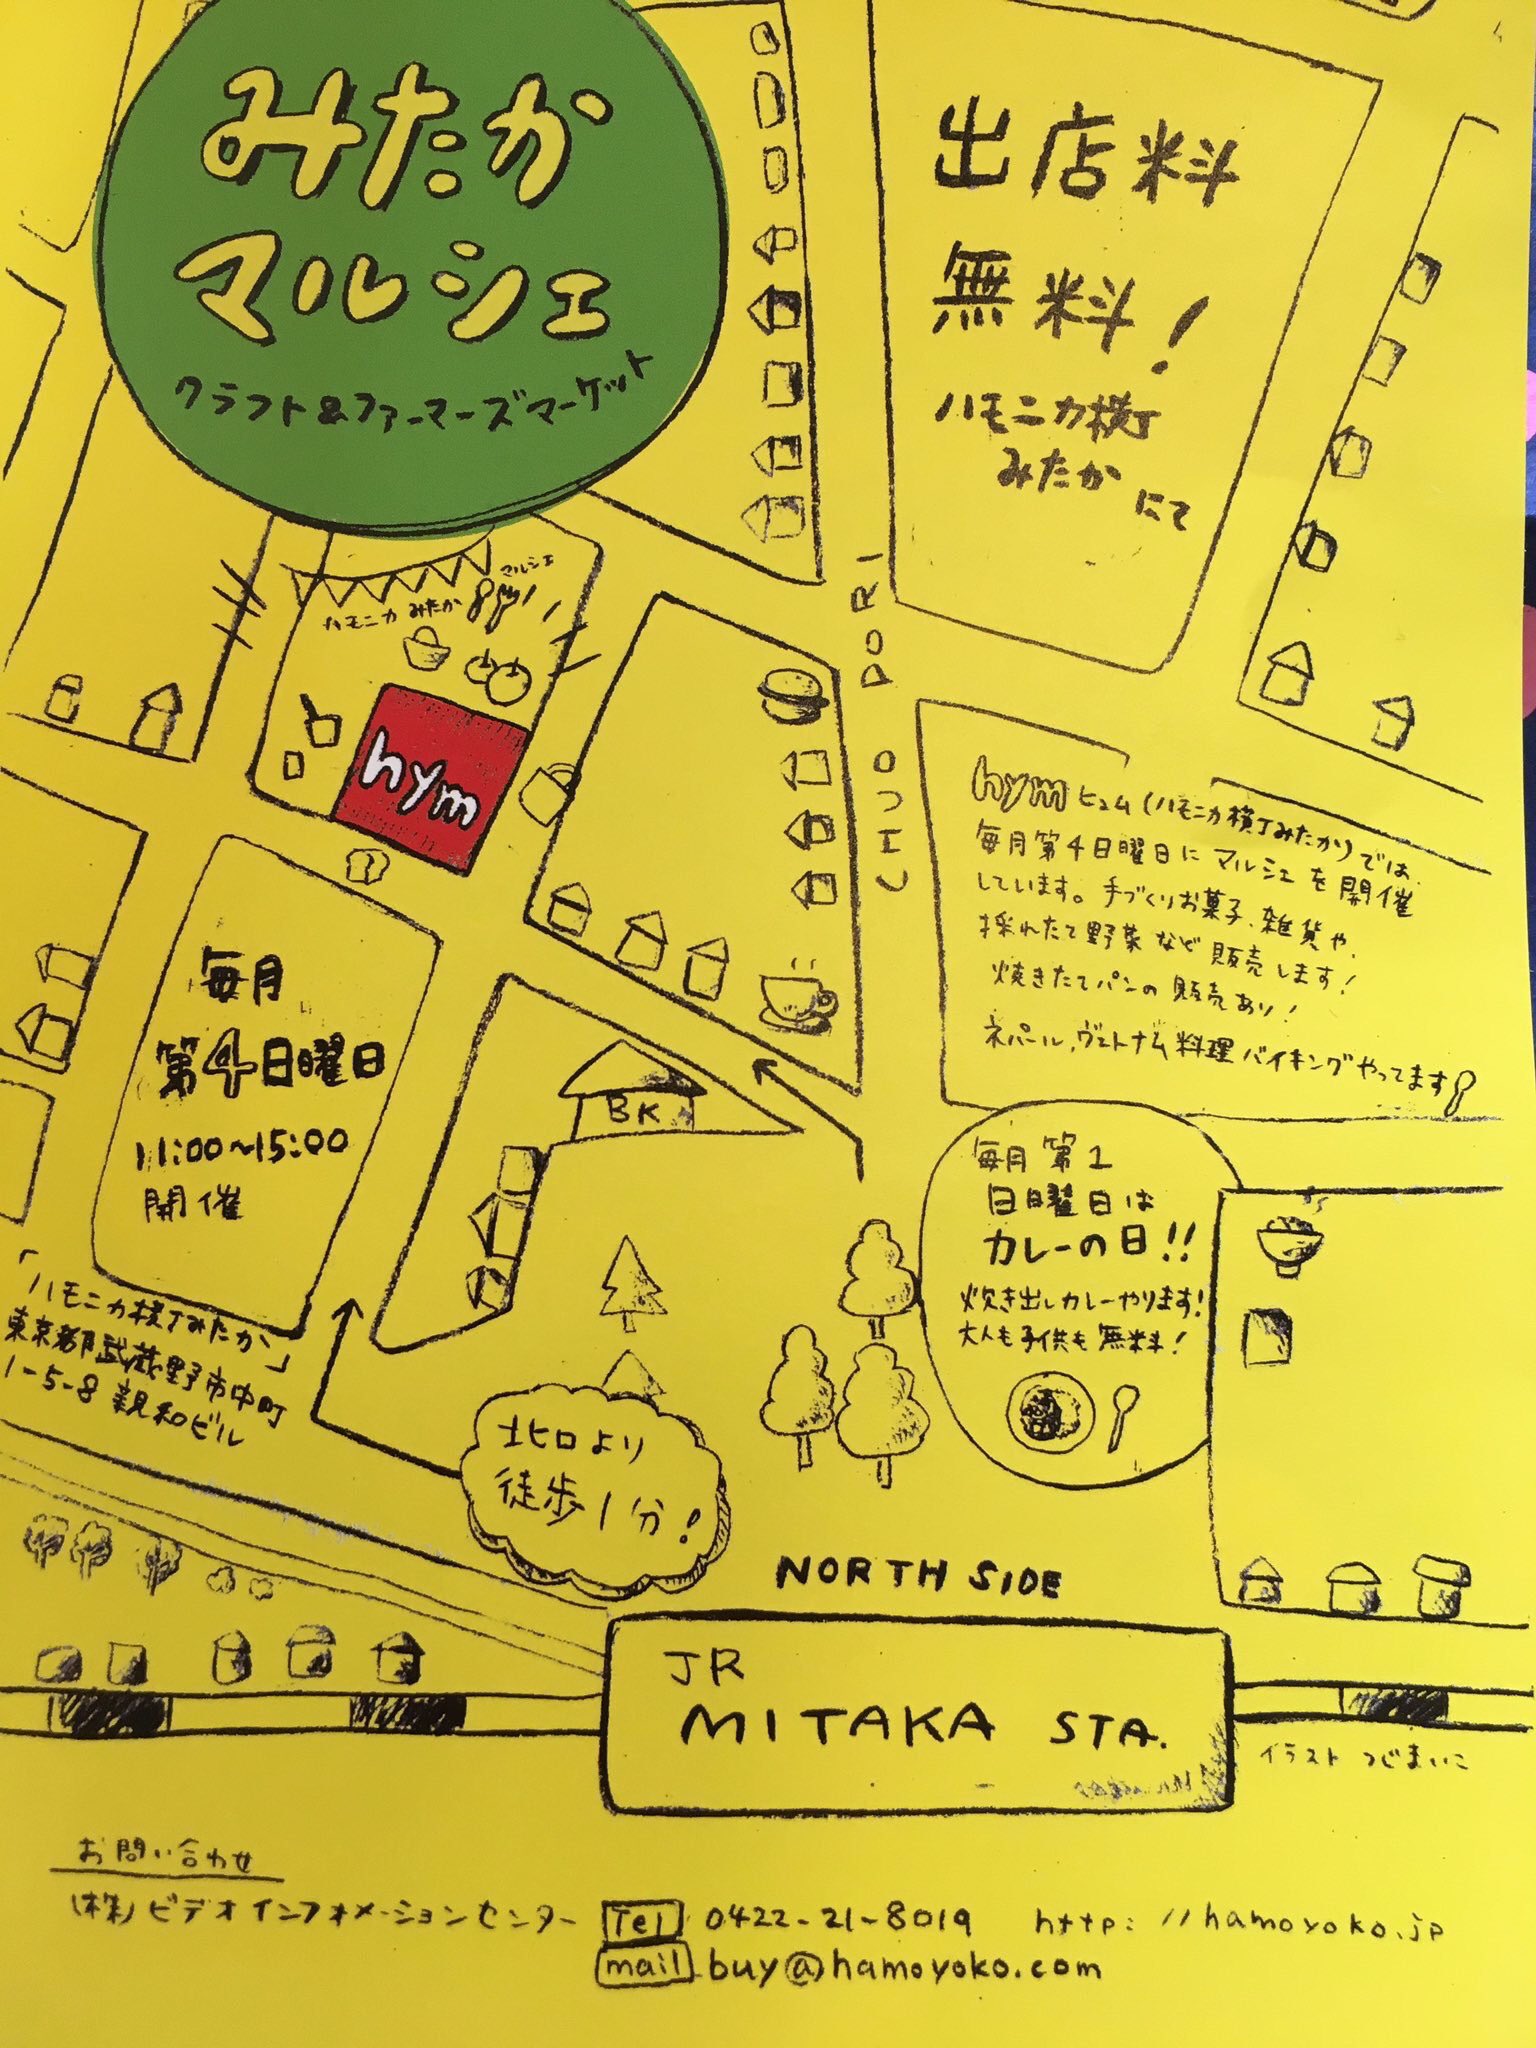 みたか
マルシェ
クラフト&ファーマーズマーケット
出店料
無料!
ハモニカ横丁
みたか にて
マルシェ
ハモニカ みたか
hym
CHUO DORI
hym ヒュム (ハモニカ横丁みたか)では
毎月第4日曜日にマルシェを開催
しています。手づくりお菓子、雑貨や、
採れたて野菜など販売します!
焼きたてパンの販売あり!
ネパール、ヴェトナム料理バイキングやってます
毎月
第4日曜日
11:00〜15:00
開催
BK
毎月第1
日曜日は
カレーの日!!
炊き出しカレーやります!
大人も子供も無料!
「ハモニカ横丁みたか」
東京都武蔵野市中町
1-5-8 親和ビル
北口より
徒歩1分!
NORTH SIDE
JR
MITAKA STA.
イラスト つじまいこ
お問い合わせ
(株)ビデオインフォメーションセンター Tel 0422-21-8019 http://hamoyoko.jp
mail buy@hamoyoko.com